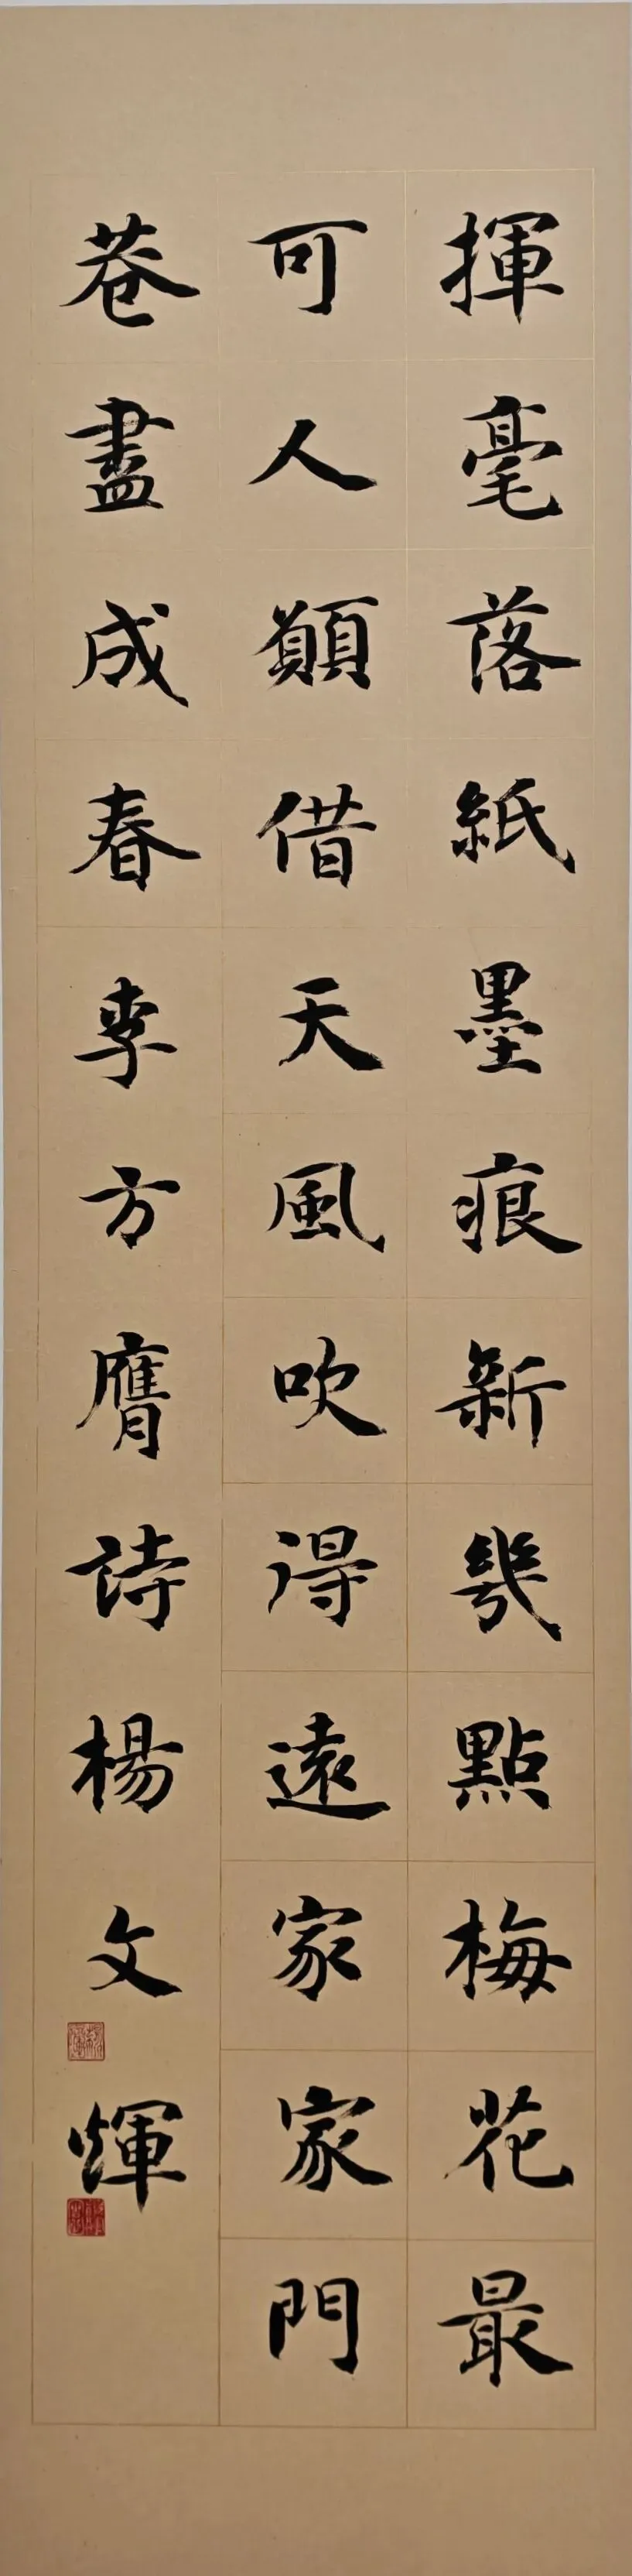 揮毫落紙墨痕新幾點梅花最
可人願借天風吹得遠家家門
巷盡成春李方膺詩楊文輝